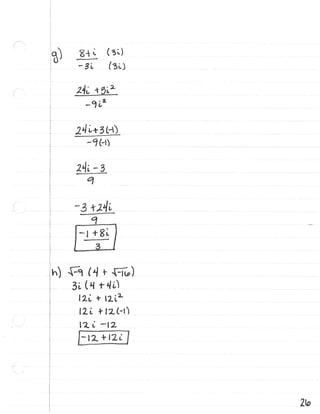 g) 8+i (3i)
-3i (3i)
24i +3i²
-9i²
24i+3(-1)
-9(-1)
24i -3
9
-3 +24i
9
-1 +8i
3
h) √-9 (4 + √-16)
3i (4 + 4i)
12i + 12i²
12i +12(-1)
12i -12
-12 +12i
26